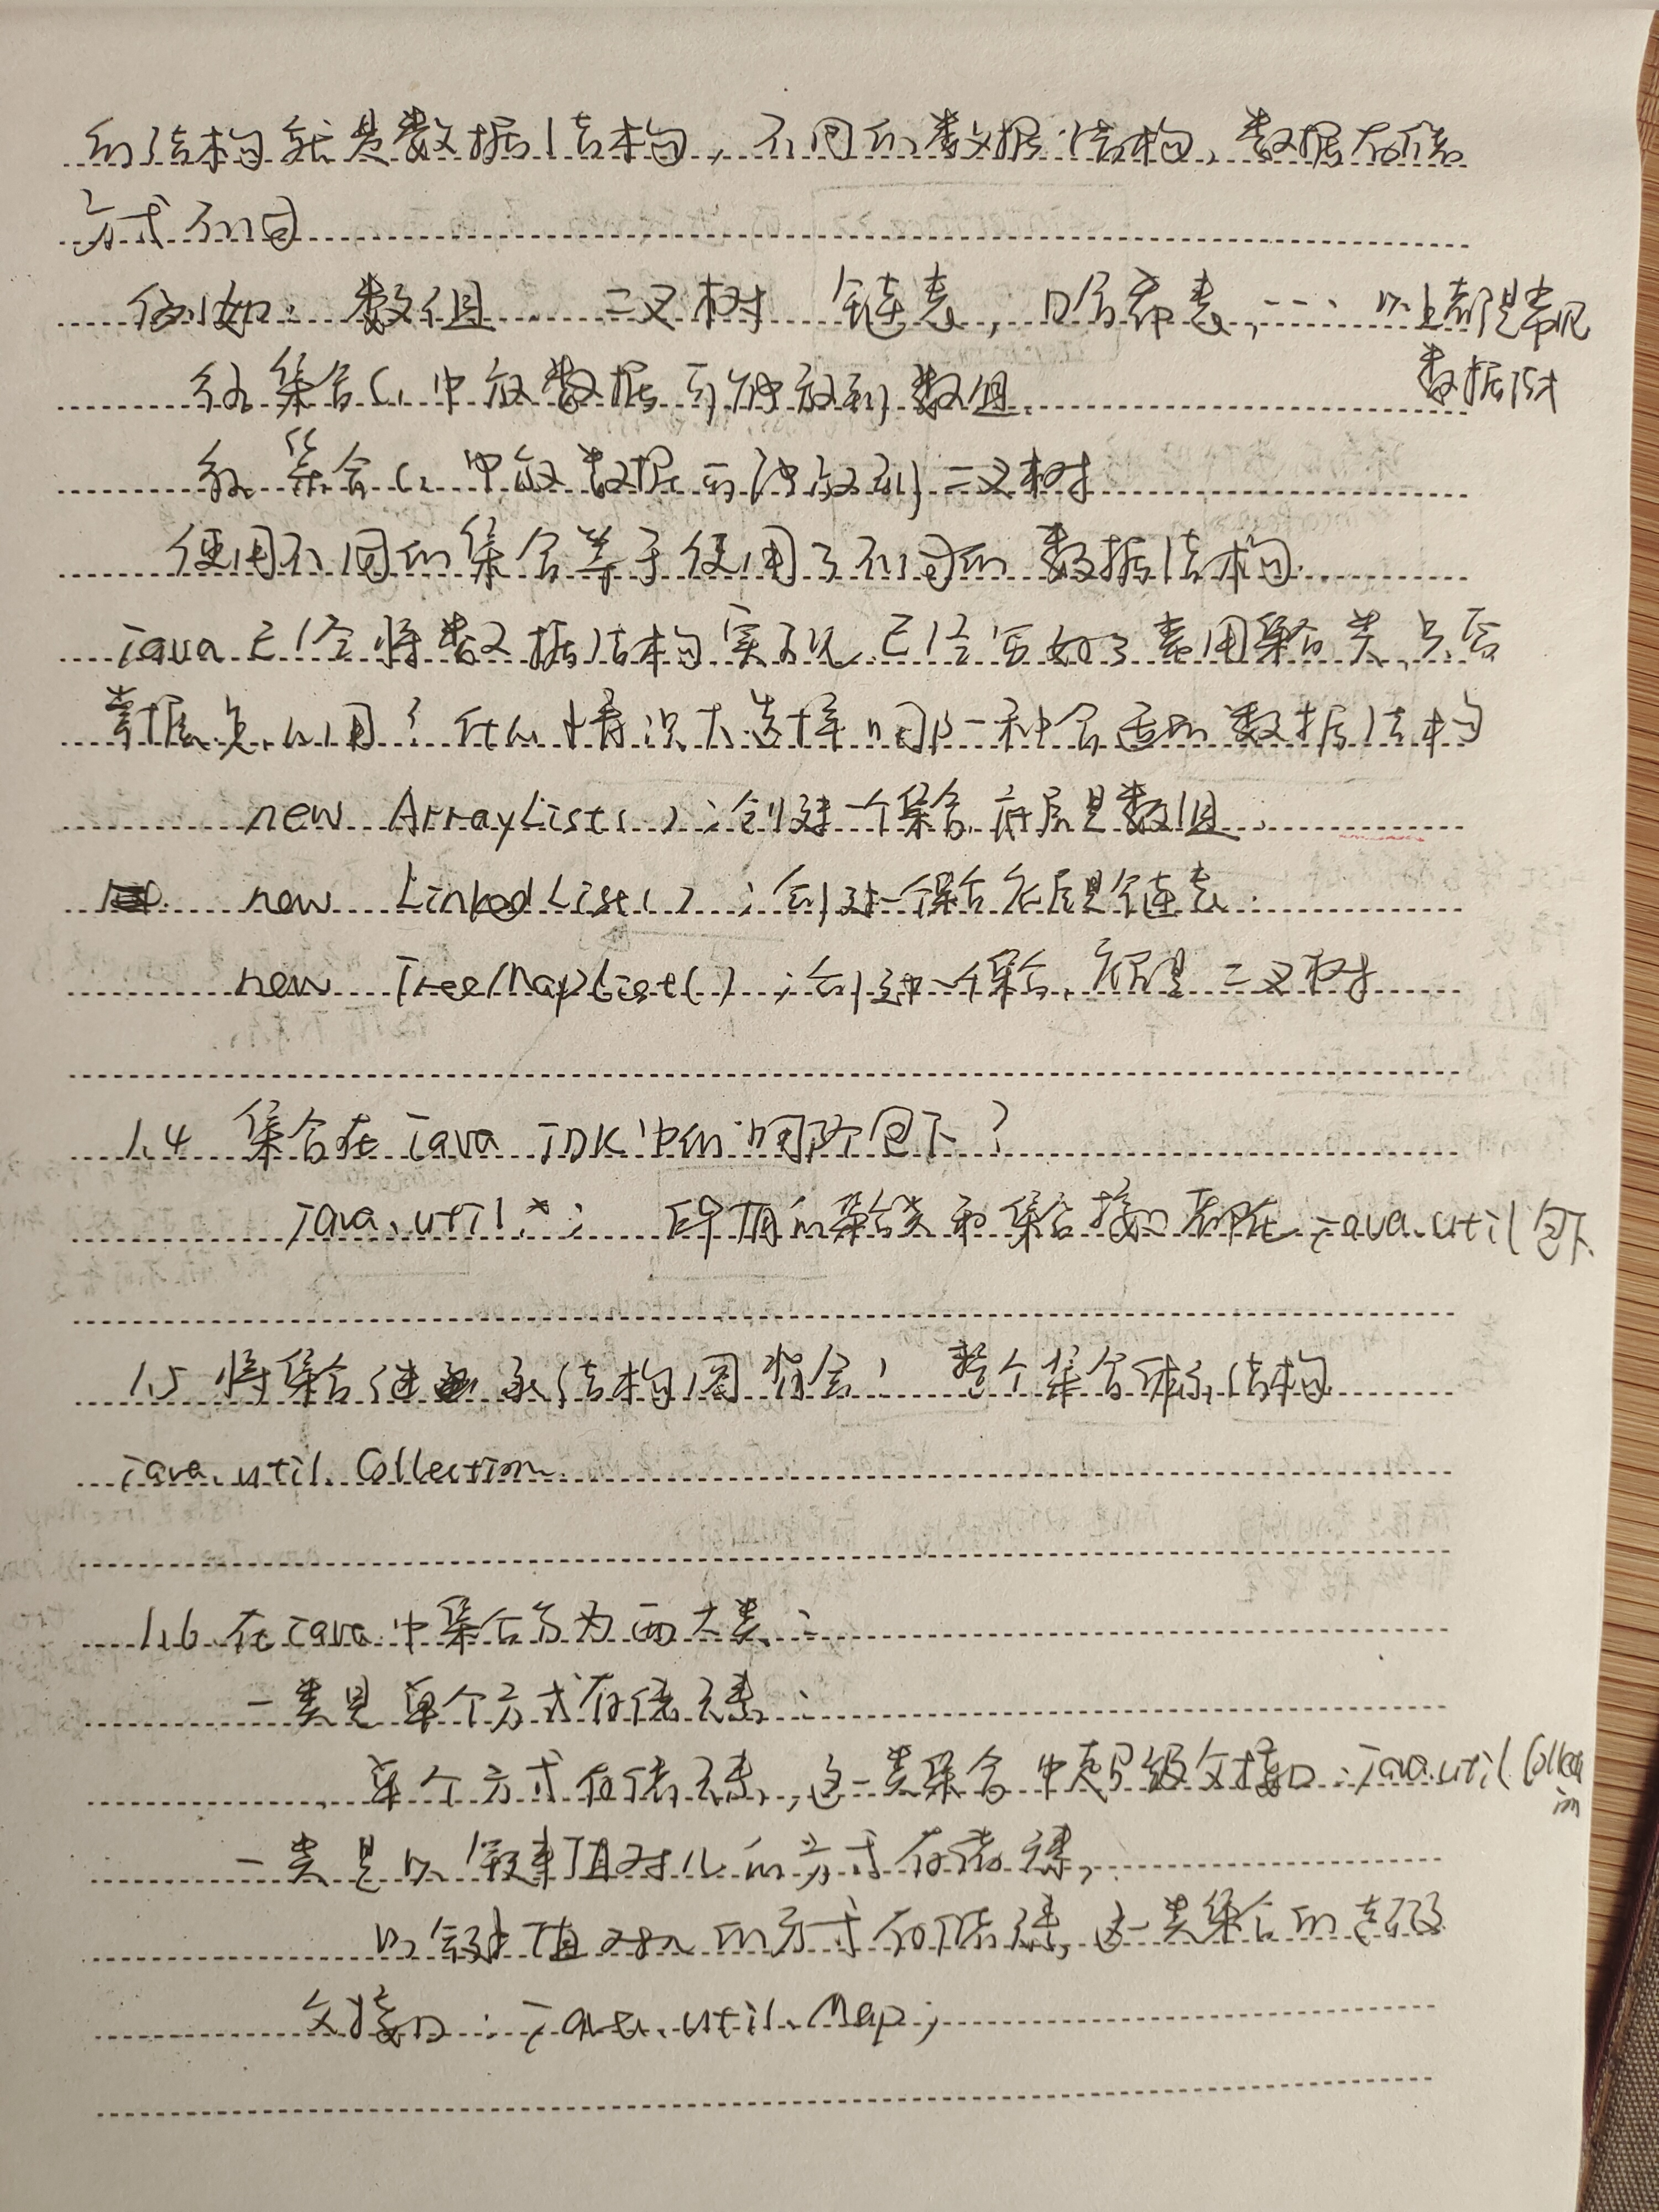 的结构就是数据结构，不同的数据结构，数据存储
方式不同
例如：数组 二叉树 链表，哈希表，---：以上都是常见
数据结构
给集合C1中放数据可能放到数组
给集合C2中放数据可能放到二叉树
使用不同的集合等于使用了不同的数据结构
java已经将数据结构实现，已经写好了常用集合类，只需
掌握怎么用？什么情况下选择哪一种合适的数据结构
new ArrayList()；创建一个集合底层是数组
new LinkedList()；创建一个集合底层是链表
new TreeMapList()；创建一个集合，底层是二叉树
1.4 集合在java JDK中的哪个包下？
java.util.*； 所有的集合类和集合接口都在java.util包下
1.5 将集合继承结构图背会！整个集合体系结构
java.util.Collection
1.6 在java中集合分为两大类：
一类是单个方式存储元素：
单个方式存储元素，这一类集合中超级父接口：java.util.Collect
ion
一类是以键值对儿的方式存储元素，
以键值对儿的方式存储元素，这一类集合的超级
父接口：java.util.Map；